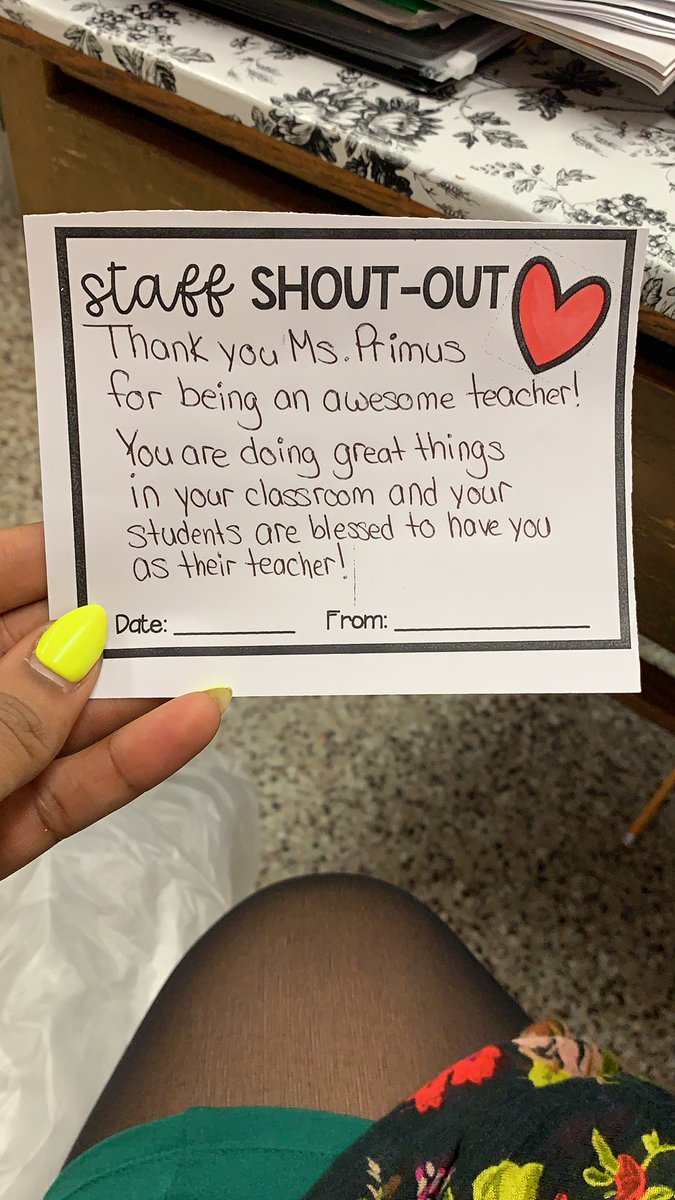 staff SHOUT-OUT
Thank you Ms. Primus
for being an awesome teacher!
You are doing great things
in your classroom and your
students are blessed to have you
as their teacher!
Date: __________ From: ________________